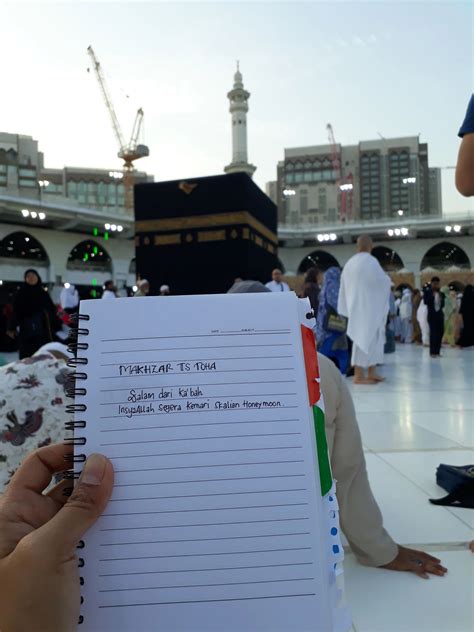 MAKHZAR TS TOHA
Salam dari Ka'bah
Insyaallah segera kemari Skalian Honeymoon